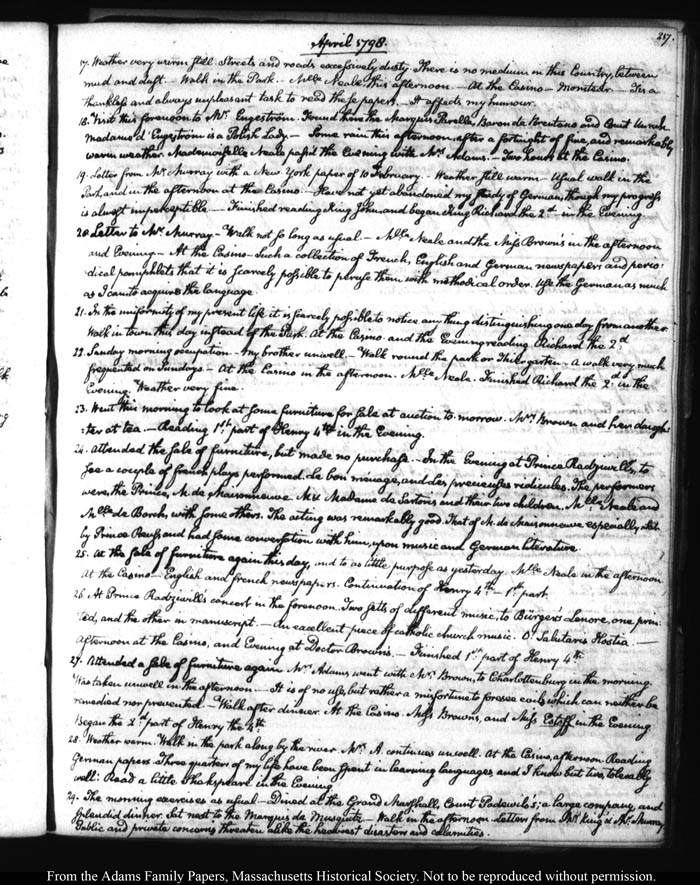 217.
April 1798.
17. Weather very warm still. Streets and roads excessively dusty. There is no medium in this Country, between
mud and dust. — Walk in the Park. — Mlle. Neale this afternoon. — At the Casino — Moniteur. — Tis a
thankless and always unpleasant task to read these papers. — It affects my humour.
18. Visit this forenoon to Mr. Engeström. Found there the Marquis Parella, Baron de and Count
Madame d'Engeström is a Polish Lady. — Some rain this afternoon, after a fortnight of fine, and remarkably
warm weather. Mademoiselle Neale pass'd the Evening with Mrs. Adams. — Two hours at the Casino.
19. Letter from Mr. Murray with a New York paper of 10 February. — Weather still warm — Usual walk in the
Park, and in the afternoon at the Casino. — Have not yet abandoned my study of German, though my progress
is almost imperceptible. — Finished reading King John, and began King Richard the 2d. in the Evening
20. Letter to Mr. Murray. — Walk not so long as usual — Mlle. Neale and the Miss Brown's in the afternoon
and Evening — At the Casino — Such a collection of French, English and German newspapers and perio-
dical pamphlets that it is scarcely possible to peruse them with methodical order. Use the German as much
as I can to acquire the language.
21. In the uniformity of my present life it is scarcely possible to notice any thing distinguishing one day from another.
Walk in town this day instead of the Park. At the Casino and the Evening reading Richard the 2d.
22. Sunday morning occupation — My brother unwell — Walk round the park or Thiergarten — a walk very much
frequented on Sundays — At the Casino in the afternoon. Mlle. Neale. Finished Richard the 2d. in the
Evening. Weather very fine.
23. Went this morning to look at some furniture for sale at auction to-morrow. Mrs. Brown and her daugh-
:ter at tea. — Reading 1st. part of Henry 4th. in the Evening.
24. Attended the sale of furniture, but made no purchase. — In the Evening at Prince Radziwill's, to
see a couple of french plays performed. Le bon ménage, and Les precieuses ridicules. The performers
were, the Prince, M. de Maisonneuve Madame de Sartoris and their two children. Mlle. Neale and
Mlle. de Borch, with some others. The acting was remarkably good. That of M. de Maisonneuve especially. Sat
by Prince Reuss and had some conversation with him, upon music and German literature.
25. At the sale of furniture again this day, and to as little purpose as yesterday. Mlle. Neale in the afternoon
At the Casino — English and french newspapers. Continuation of Henry 4th — 1st. part
26. At Prince Radziwill's concert in the forenoon. Two setts of different music, to Bürger's Lenore, one prin-
ted, and the other in manuscript. — An excellent piece of catholic church music. O! Salutaris Hostia. —
Afternoon at the Casino, and Evening at Doctor Brown's. — Finished 1st. part of Henry 4th.
27. Attended a sale of furniture again. Mrs. Adams went with Mrs. Brown, to Charlottenburg in the morning.
Was taken unwell in the afternoon — It is of no use, but rather a misfortune to foresee evils which can neither be
remedied nor prevented. — Walk after dinner. At the Casino. Miss Browns, and Miss Estoff in the Evening
Began the 2d. part of Henry the 4th.
28. Weather warm. Walk in the park along by the river. Mrs. A. continues unwell. At the Casino, afternoon. Reading
German papers. Three quarters of my life have been spent in learning languages and I know but two, tolerably
well. Read a little Shakespeare in the Evening.
29. The morning exercises as usual — Dined at the Grand Marshall, Count Podewils's; a large company, and
splendid dinner. Sat next to the Marquis de Musquitz — Walk in the afternoon. Letters from Mr. King & Mr. Murray.
Public and private concerns threaten alike the heaviest disasters and calamities.
From the Adams Family Papers, Massachusetts Historical Society. Not to be reproduced without permission.